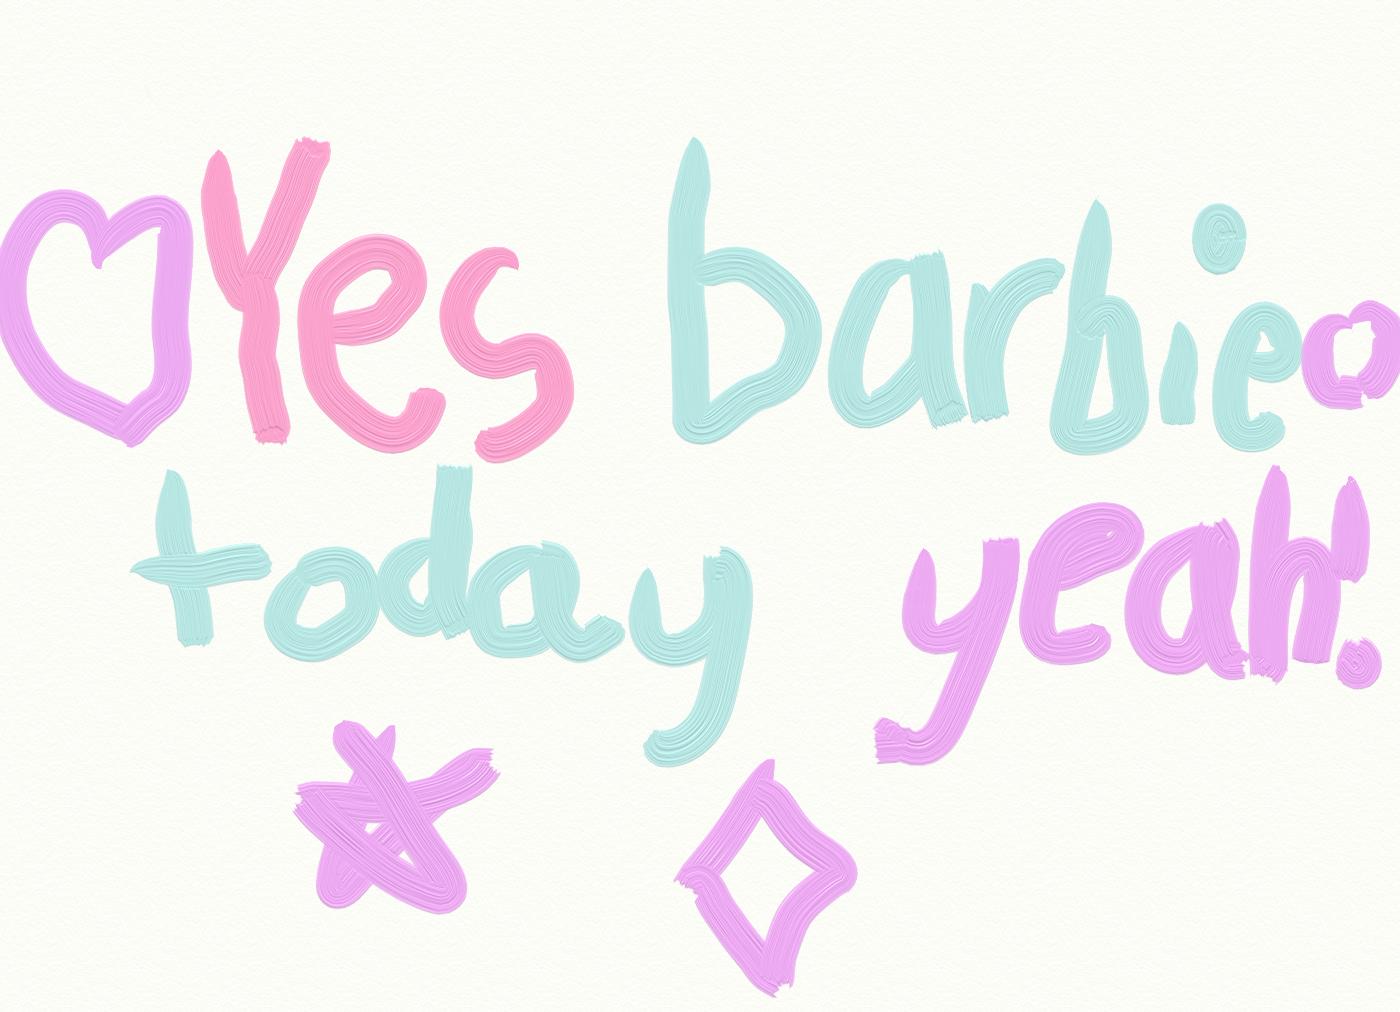 Yes barbie
today yeah!